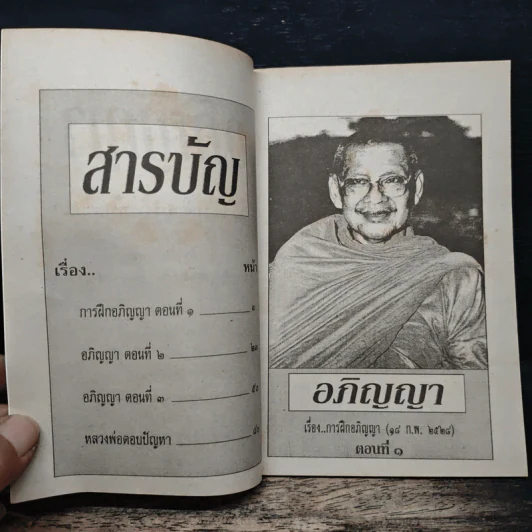 สารบัญ
เรื่อง.. หน้า
การฝึกอภิญญา ตอนที่ ๑
อภิญญา ตอนที่ ๒
อภิญญา ตอนที่ ๓
หลวงพ่อตอบปัญหา
อภิญญา
เรื่อง..การฝึกอภิญญา (๑๘ ก.พ. ๒๕๒๘)
ตอนที่ ๑